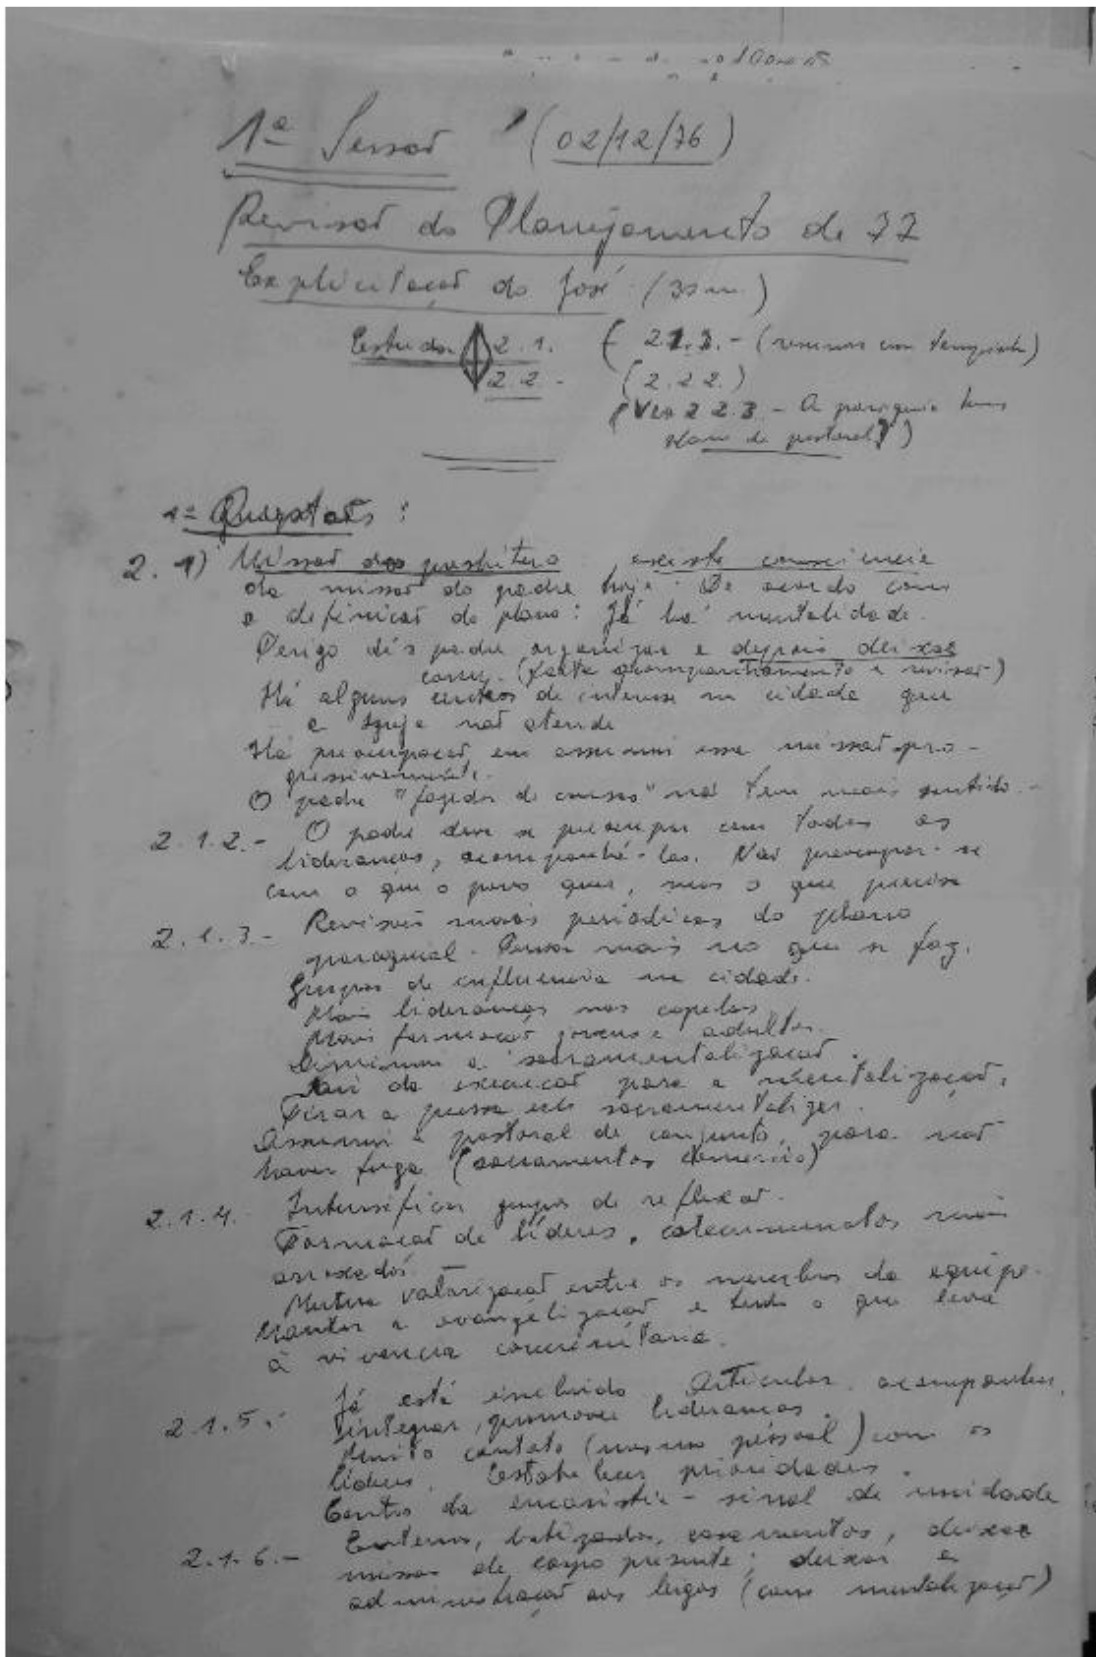 1ª Sessão (02/12/76)
Revisão do Planejamento de 77
Explicitação do José (35 m.)
Estudar 2.1. ( 2.1.3. - (
2.2. (2.2.2.)
(Ver 2.2.3 - A paróquia tem
plano de pastoral?)
1ª Questões:
2. 1) Missão do presbítero existe consciência
da missão do padre hoje. De acordo com
a definição do plano: Já há mentalidade.
Perigo do padre organizar e depois deixar
correr. (falta acompanhamento e revisão)
Há alguns centros de interesse na cidade que
a Igreja não atende
Há preocupação em assumir essa missão pro-
gressivamente.
O padre "fazedor de coisas" não tem mais sentido.
2.1.2.- O padre deve se preocupar com todas as
lideranças, acompanhá-las. Não preocupar-se
com o que o povo quer, mas o que precisa
2.1.3.- Revisões mais periódicas do plano
paroquial. Pensar mais no que se faz.
Grupos de influência na cidade.
Mais lideranças nas capelas
Mais formação jovens e adultos.
Diminuir a sacramentalização.
Sair da execução para a mentalização.
Tirar a pressa de sacramentalizar.
Assumir a pastoral de conjunto, para não
haver fuga (sacramentos comércio)
2.1.4. Intensificar grupos de reflexão.
Formação de líderes, catecumenatos mais
Mútua valorização entre os membros da equipe.
Manter a evangelização e tudo o que leva
à vivência comunitária.
2.1.5.- Já está incluido. Articular, acompanhar,
integrar, promover lideranças.
Muito contato (mesmo pessoal) com os
líderes. Estabelecer prioridades.
Centro da eucaristia - sinal de unidade
2.1.6.- Enterros, batizados, casamentos, deixar
missas de corpo presente; deixar a
administração aos leigos (com mentalização)